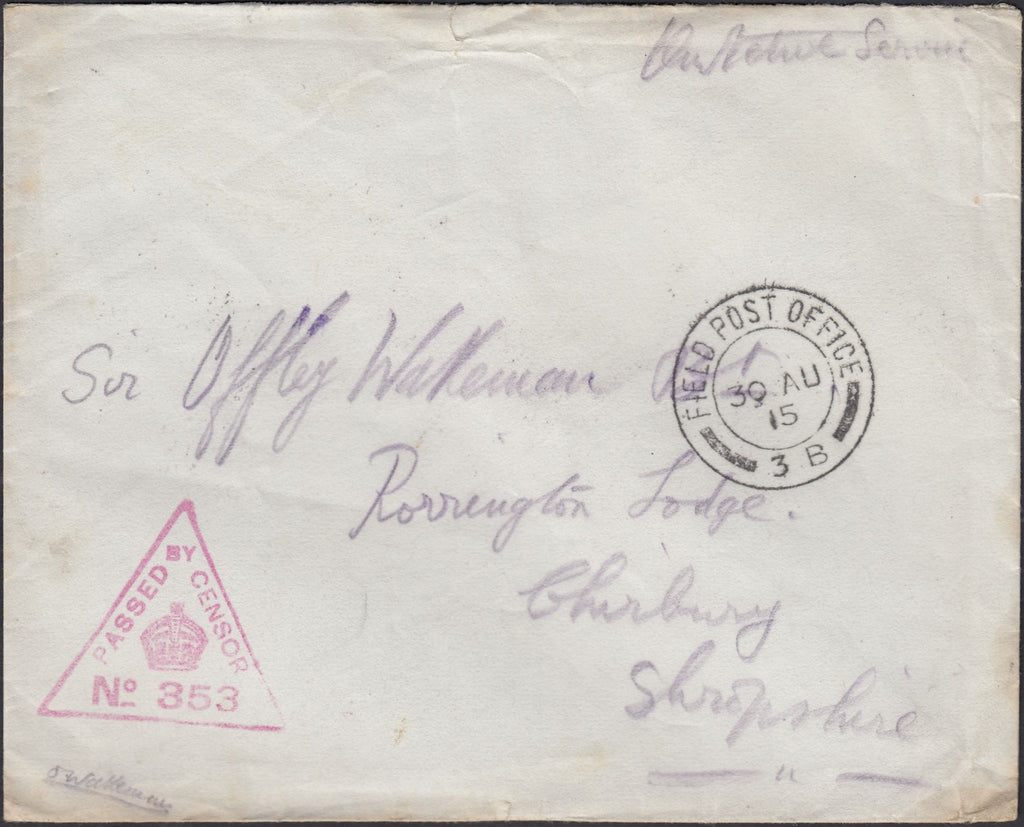 On Active Service
Sir Offley Wakeman Bt
FIELD POST OFFICE
30 AU
15
3 B
Rorrington Lodge.
Chirbury
Shropshire
PASSED BY CENSOR
No 353
Wakeman